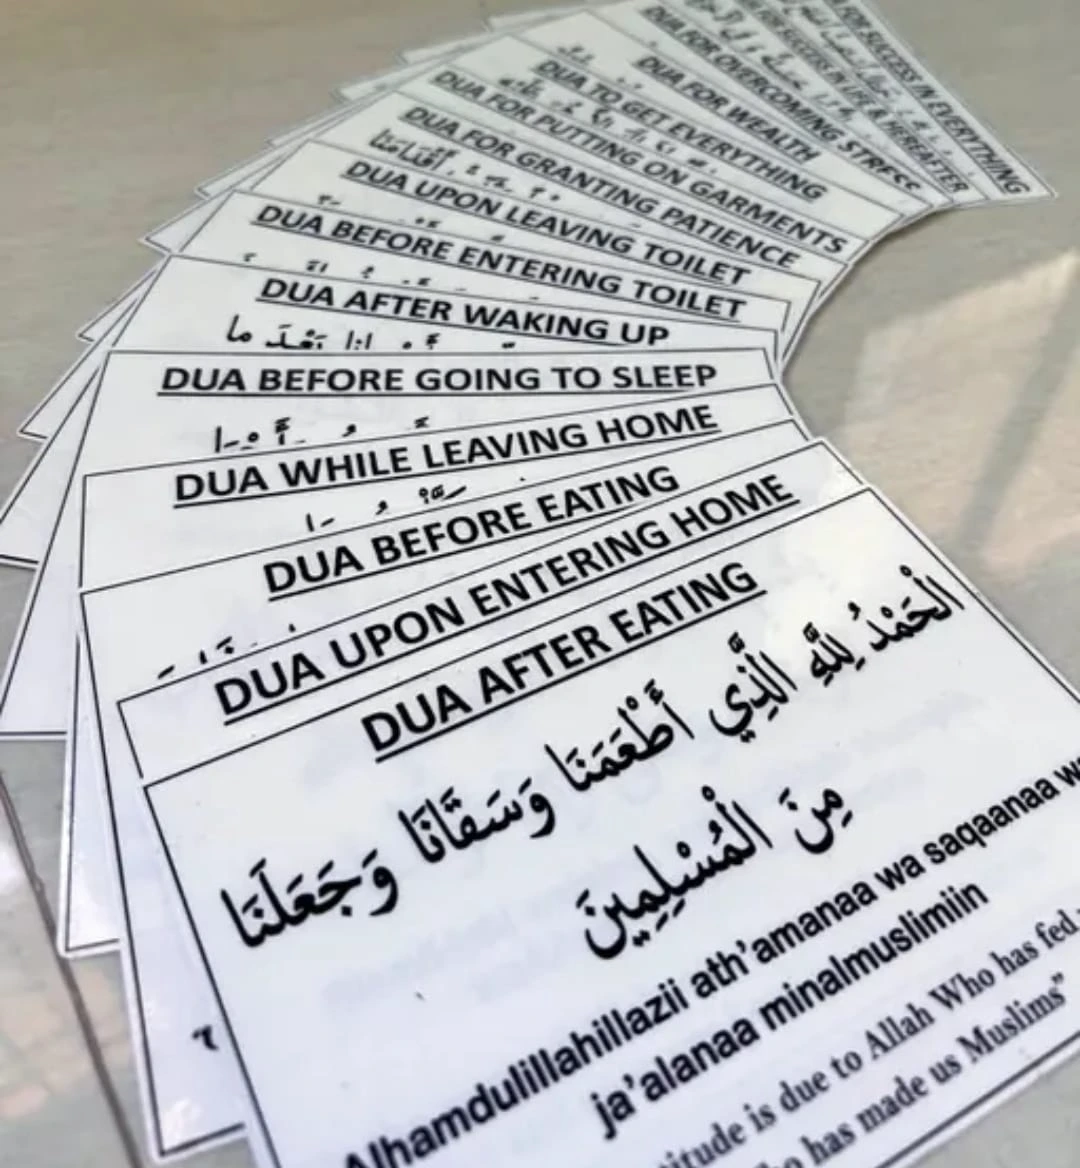 FOR SUCCESS IN EVERYTHING
SUCCESS IN LIFE & HEREAFTER
DUA FOR OVERCOMING STRESS
DUA FOR WEALTH
DUA TO GET EVERYTHING
DUA FOR PUTTING ON GARMENTS
DUA FOR GRANTING PATIENCE
DUA UPON LEAVING TOILET
DUA BEFORE ENTERING TOILET
DUA AFTER WAKING UP
DUA BEFORE GOING TO SLEEP
DUA WHILE LEAVING HOME
DUA BEFORE EATING
DUA UPON ENTERING HOME
DUA AFTER EATING
الْحَمْدُ لِلَّهِ الَّذِي أَطْعَمَنَا وَسَقَانَا وَجَعَلَنَا
مِنَ الْمُسْلِمِينَ
Alhamdulillahillazii ath'amanaa wa saqaanaa
ja'alanaa minalmuslimiin
is due to Allah Who has fed
has made us Muslims"